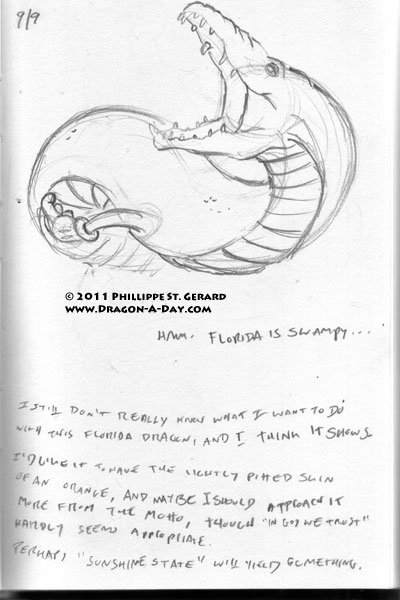 9/9
© 2011 Phillippe St. Gerard
www.Dragon-A-Day.com
HMM. FLORIDA IS SWAMPY...
I STILL DON'T REALLY KNOW WHAT I WANT TO DO
WITH THIS FLORIDA DRAGON, AND I THINK IT SHOWS.
I'D LIKE IT TO HAVE THE LIGHTLY PITTED SKIN
OF AN ORANGE, AND MAYBE I SHOULD APPROACH IT
MORE FROM THE MOTTO, THOUGH "IN GOD WE TRUST"
HARDLY SEEMS APPROPRIATE.
PERHAPS "SUNSHINE STATE" WILL YIELD SOMETHING.